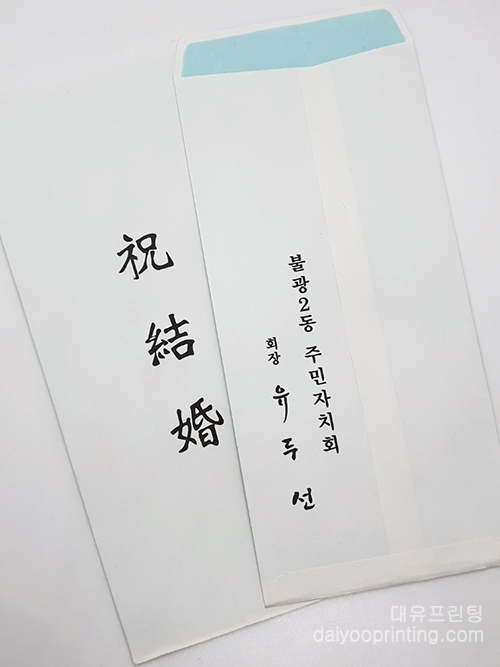 祝結婚
불광2동 주민자치회
회장 유두선
대유프린팅
daiyooprinting.com